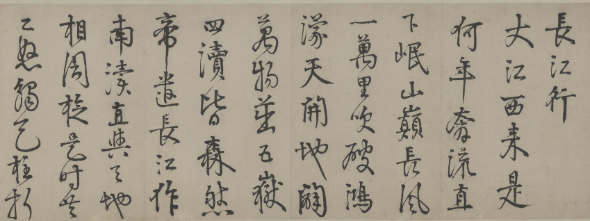 長江行
大江西来是
何年奔流直
下岷山巔長風
一萬里吹破鴻
濛天開地闢
萬物茁五嶽
四瀆皆森然
帝遣長江作
南瀆直與天地
相周旋是時共
工怒觸天柱折